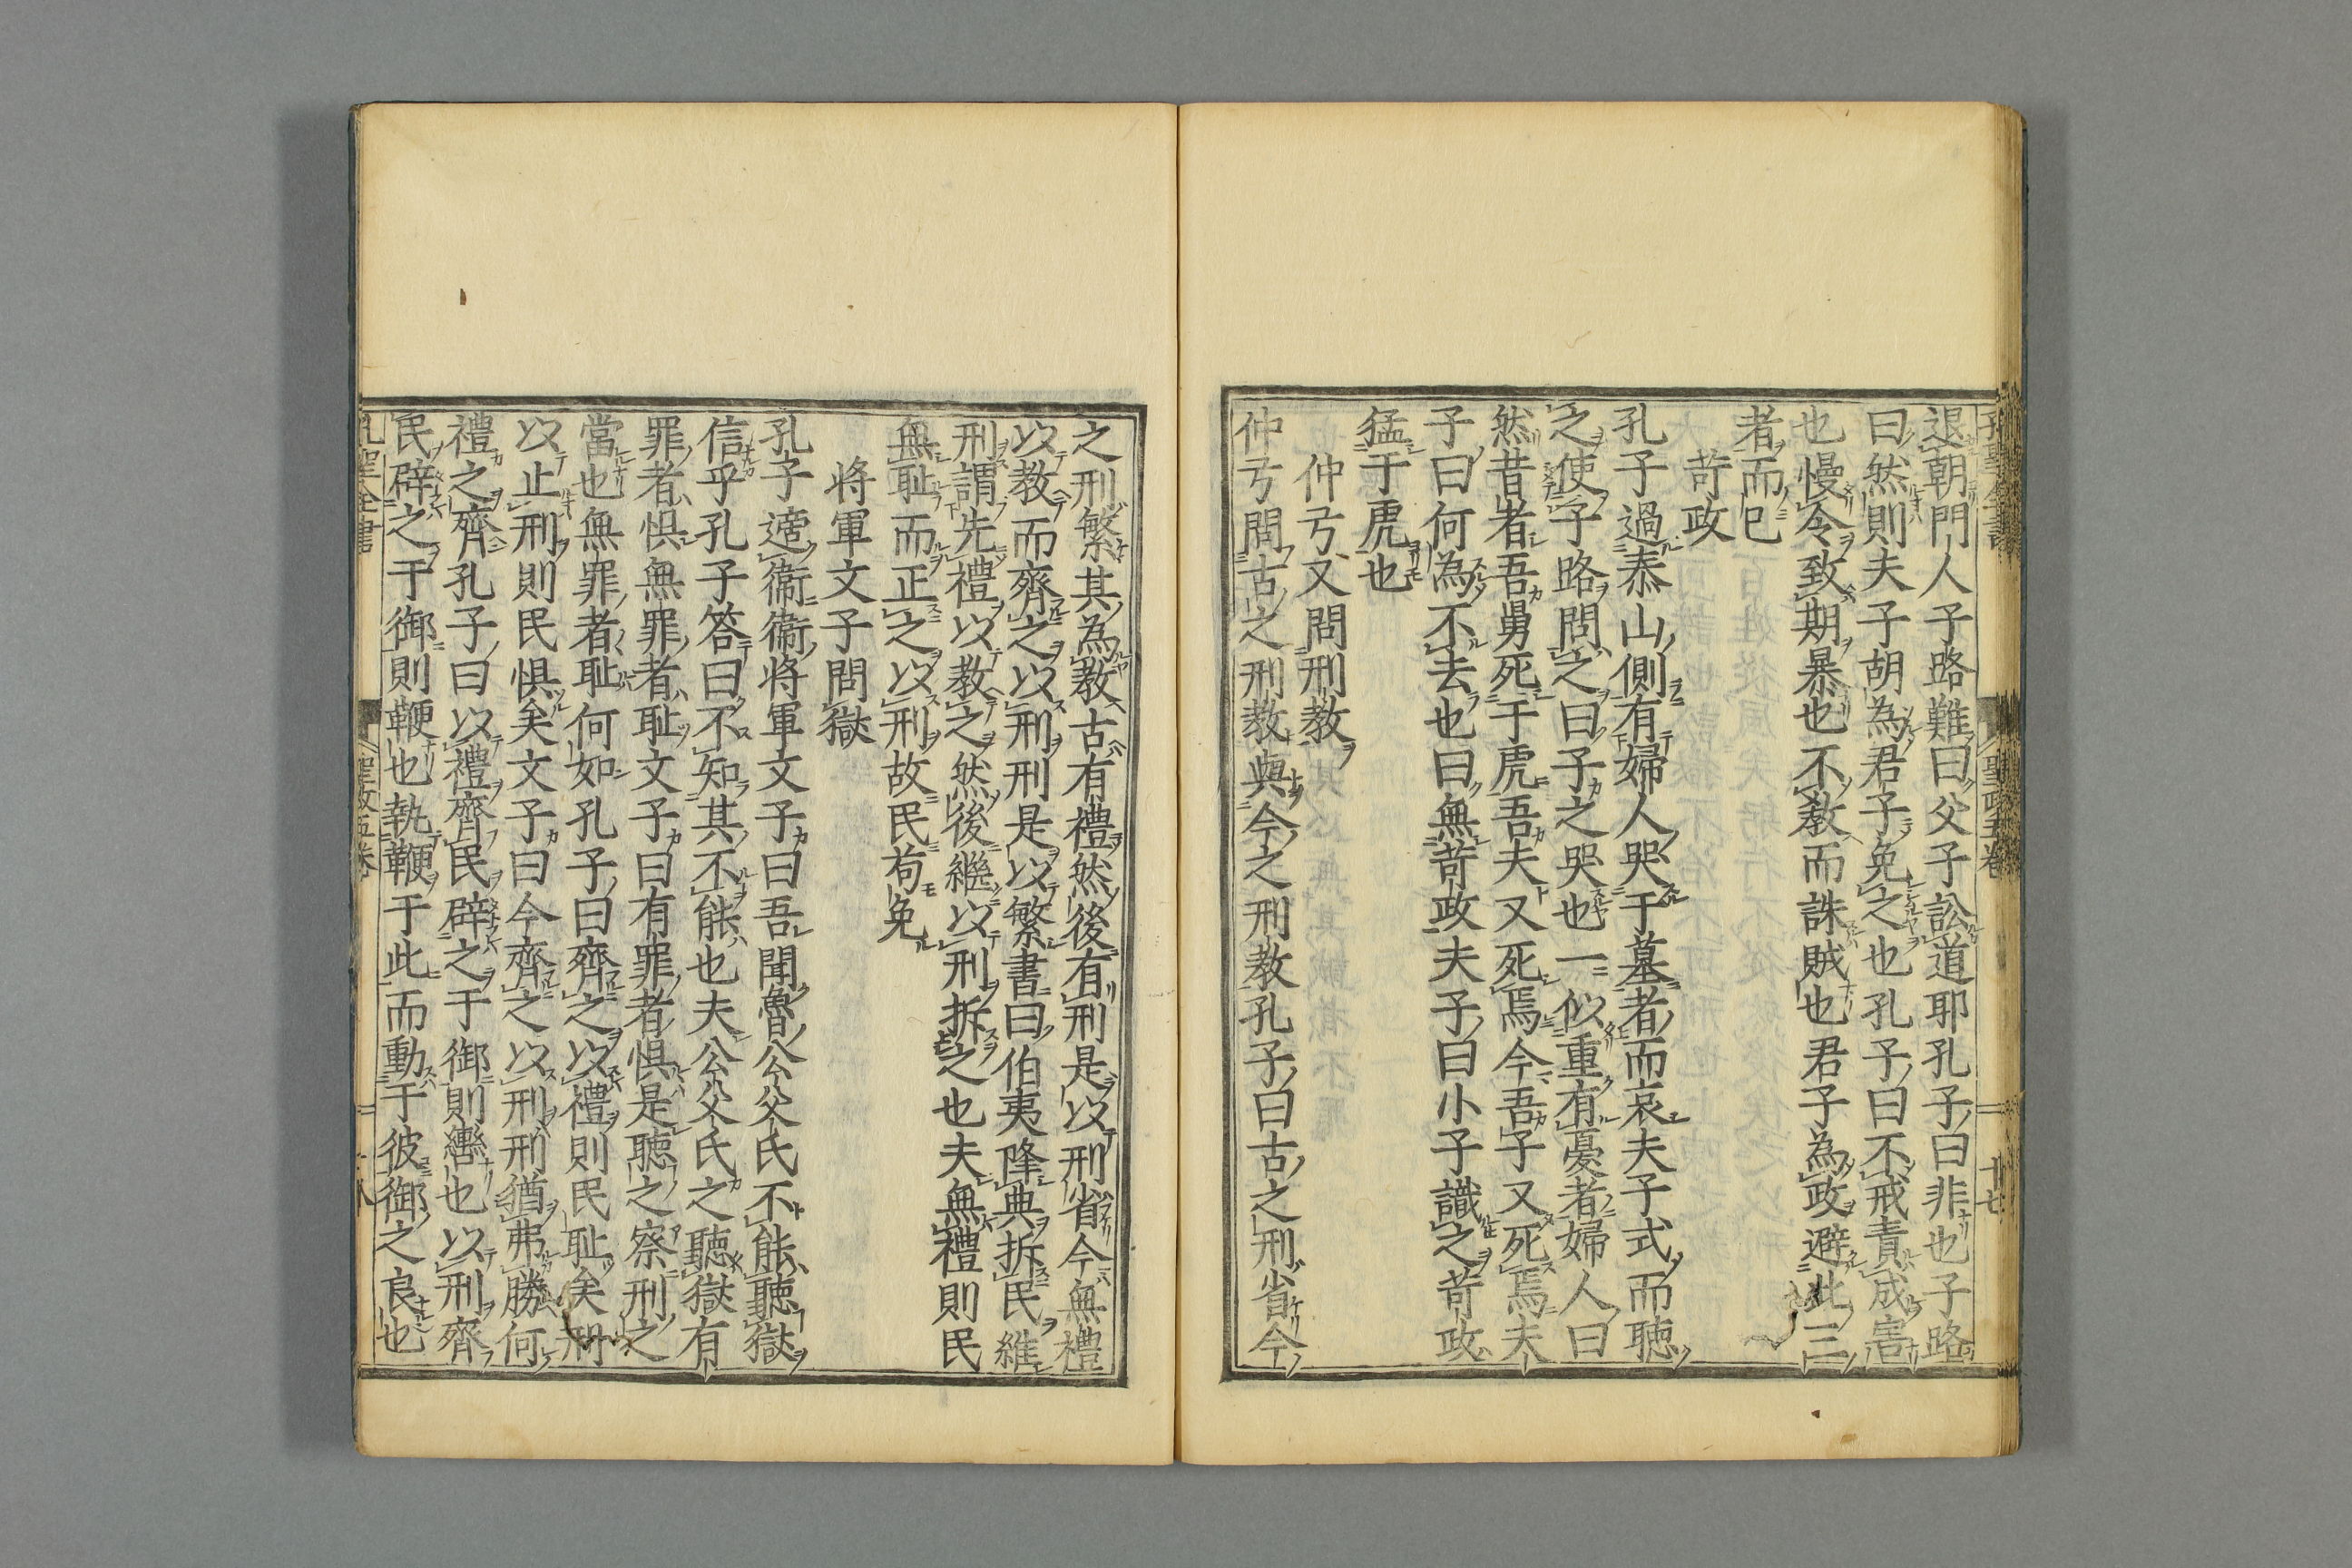 退朝門人子路難曰父子訟道耶孔子曰非也子路
曰然則夫子胡為君子免之也孔子曰不戒責成害
也慢令致期暴也不教而誅賊也君子為政避此三
者而已
苛政
孔子過泰山側有婦人哭于墓者而哀夫子式而聴
之使子路問之曰子之哭也一似重有憂者婦人曰
然昔者吾舅死于虎吾夫又死焉今吾子又死焉夫
子曰何為不去也曰無苛政夫子曰小子識之苛政
猛于虎也
仲弓又問刑教
仲弓問古之刑教與今之刑教孔子曰古之刑省今
之刑繁其為教古有禮然後有刑是以刑省今無禮
以教而齊之以刑刑是以繁書曰伯夷降典折民維
刑謂先禮以教之然後繼以刑折之也夫無禮則民
無恥而正之以刑故民苟免
将軍文子問獄
孔子適衛衛将軍文子曰吾聞魯公父氏不能聽獄
信乎孔子答曰不知其不能也夫公父氏之聽獄有
罪者惧無罪者恥文子曰有罪者惧是聽之察刑之
當也無罪者恥何如孔子曰齊之以禮則民恥矣刑
以止刑則民惧矣文子曰今齊之以刑刑猶弗勝何
禮之齊孔子曰以禮齊民辟之于御則轡也以刑齊
民辟之于御則鞭也執轡于此而動于彼御之良也
孔聖全書
聖政五卷